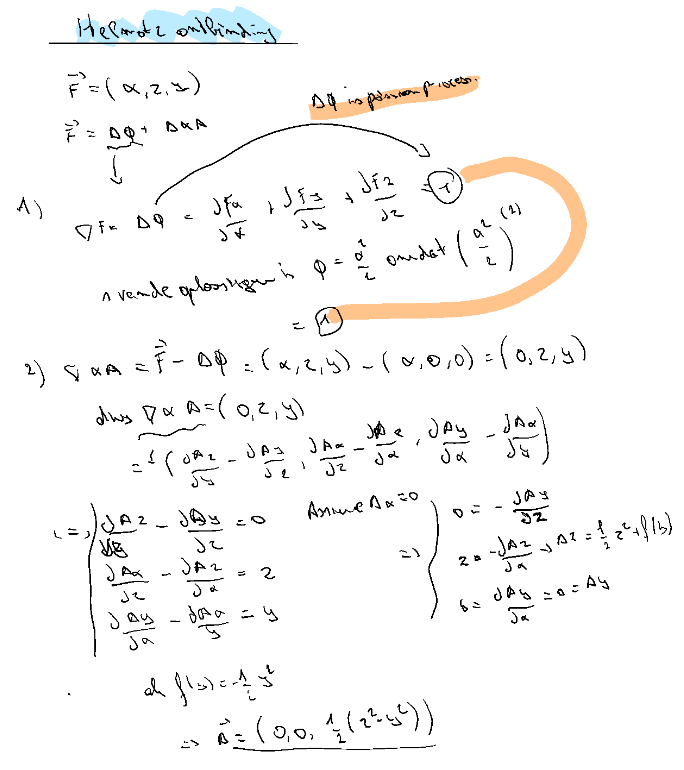 Helmotz ontbinding
F⃗ = (x, z, y)
F⃗ = ΔΦ + ΔxA
ΔΦ is poisson proces.
1) ∇F = ΔΦ = ∂Fx/∂x + ∂Fy/∂y + ∂Fz/∂z = 1
1 van de oplossingen is Φ = x²/2 omdat (x²/2)^(2)
= 1
2) ∇xA = F⃗ - ΔΦ = (x, z, y) - (x, 0, 0) = (0, z, y)
dus ∇xA = (0, z, y)
= (∂Az/∂y - ∂Ay/∂z, ∂Ax/∂z - ∂Az/∂x, ∂Ay/∂x - ∂Ax/∂y)
∂Az/∂y - ∂Ay/∂z = 0
∂Ax/∂z - ∂Az/∂x = z
∂Ay/∂x - ∂Ax/y = y
Assume Ax = 0
=>
0 = - ∂Ay/∂z
z = -∂Az/∂x → Az = 1/2 z² + f(y)
= ∂Ay/∂x = 0 = Ay
f(y) = -1/2 y²
=> A⃗ = (0, 0, 1/2 (z² - y²))